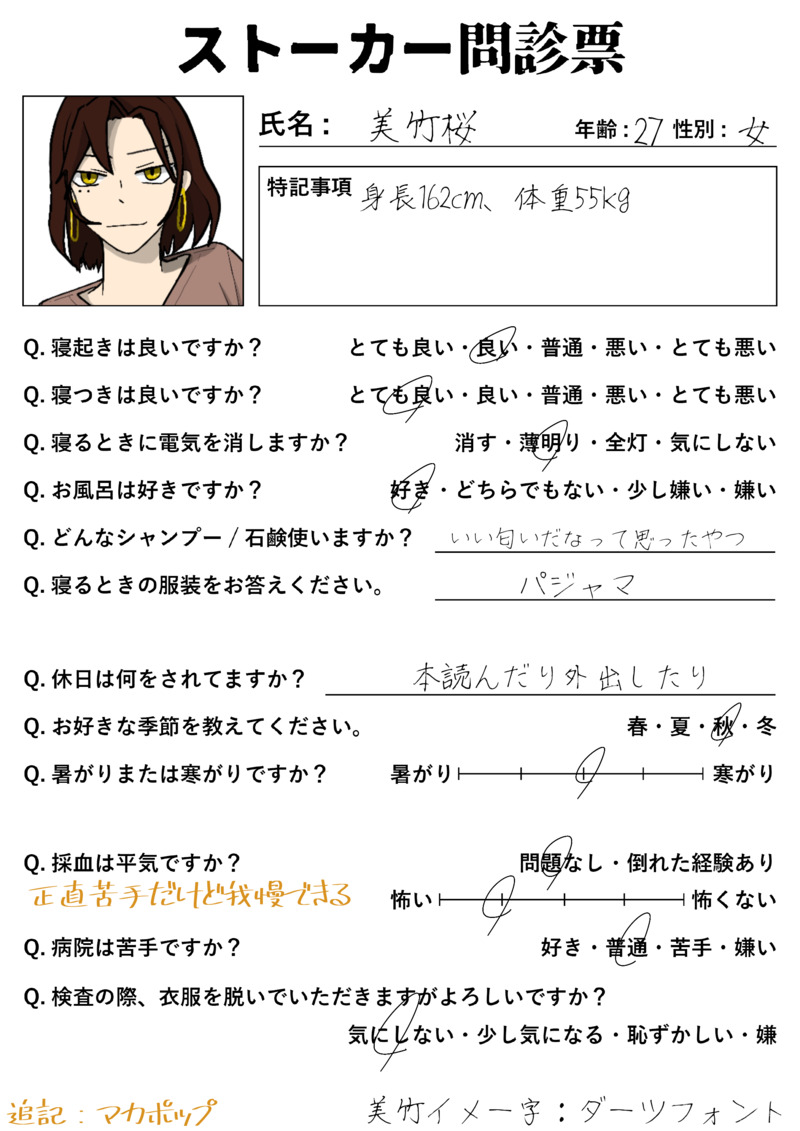 ストーカー問診票
氏名： 美竹桜 年齢：27 性別： 女
特記事項 身長162cm、体重55kg
Q. 寝起きは良いですか？ とても良い・良い・普通・悪い・とても悪い
Q. 寝つきは良いですか？ とても良い・良い・普通・悪い・とても悪い
Q. 寝るときに電気を消しますか？ 消す・薄明り・全灯・気にしない
Q. お風呂は好きですか？ 好き・どちらでもない・少し嫌い・嫌い
Q. どんなシャンプー / 石鹸使いますか？ いい匂いだなって思ったやつ
Q. 寝るときの服装をお答えください。 パジャマ
Q. 休日は何をされてますか？ 本読んだり外出したり
Q. お好きな季節を教えてください。 春・夏・秋・冬
Q. 暑がりまたは寒がりですか？ 暑がり 寒がり
Q. 採血は平気ですか？ 問題なし・倒れた経験あり
正直苦手だけど我慢できる 怖い 怖くない
Q. 病院は苦手ですか？ 好き・普通・苦手・嫌い
Q. 検査の際、衣服を脱いでいただきますがよろしいですか？
気にしない・少し気になる・恥ずかしい・嫌
追記：マカポップ 美竹イメー字：ダーツフォント